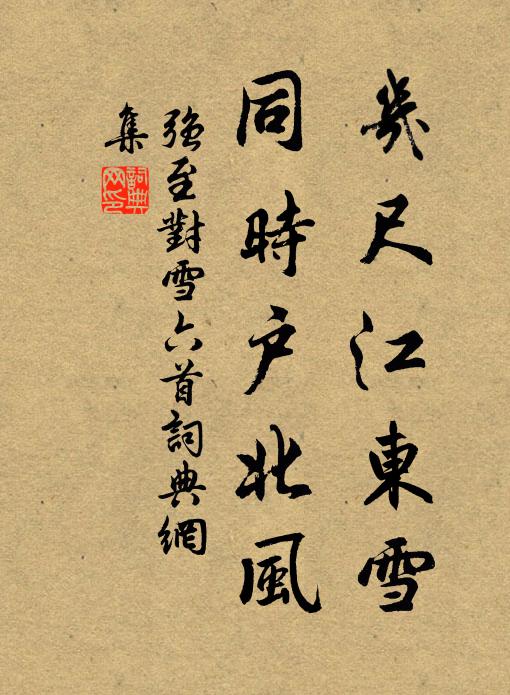 幾尺江東雪
同時戶北風
強至對雪六首詞典網
集
詞典
网印